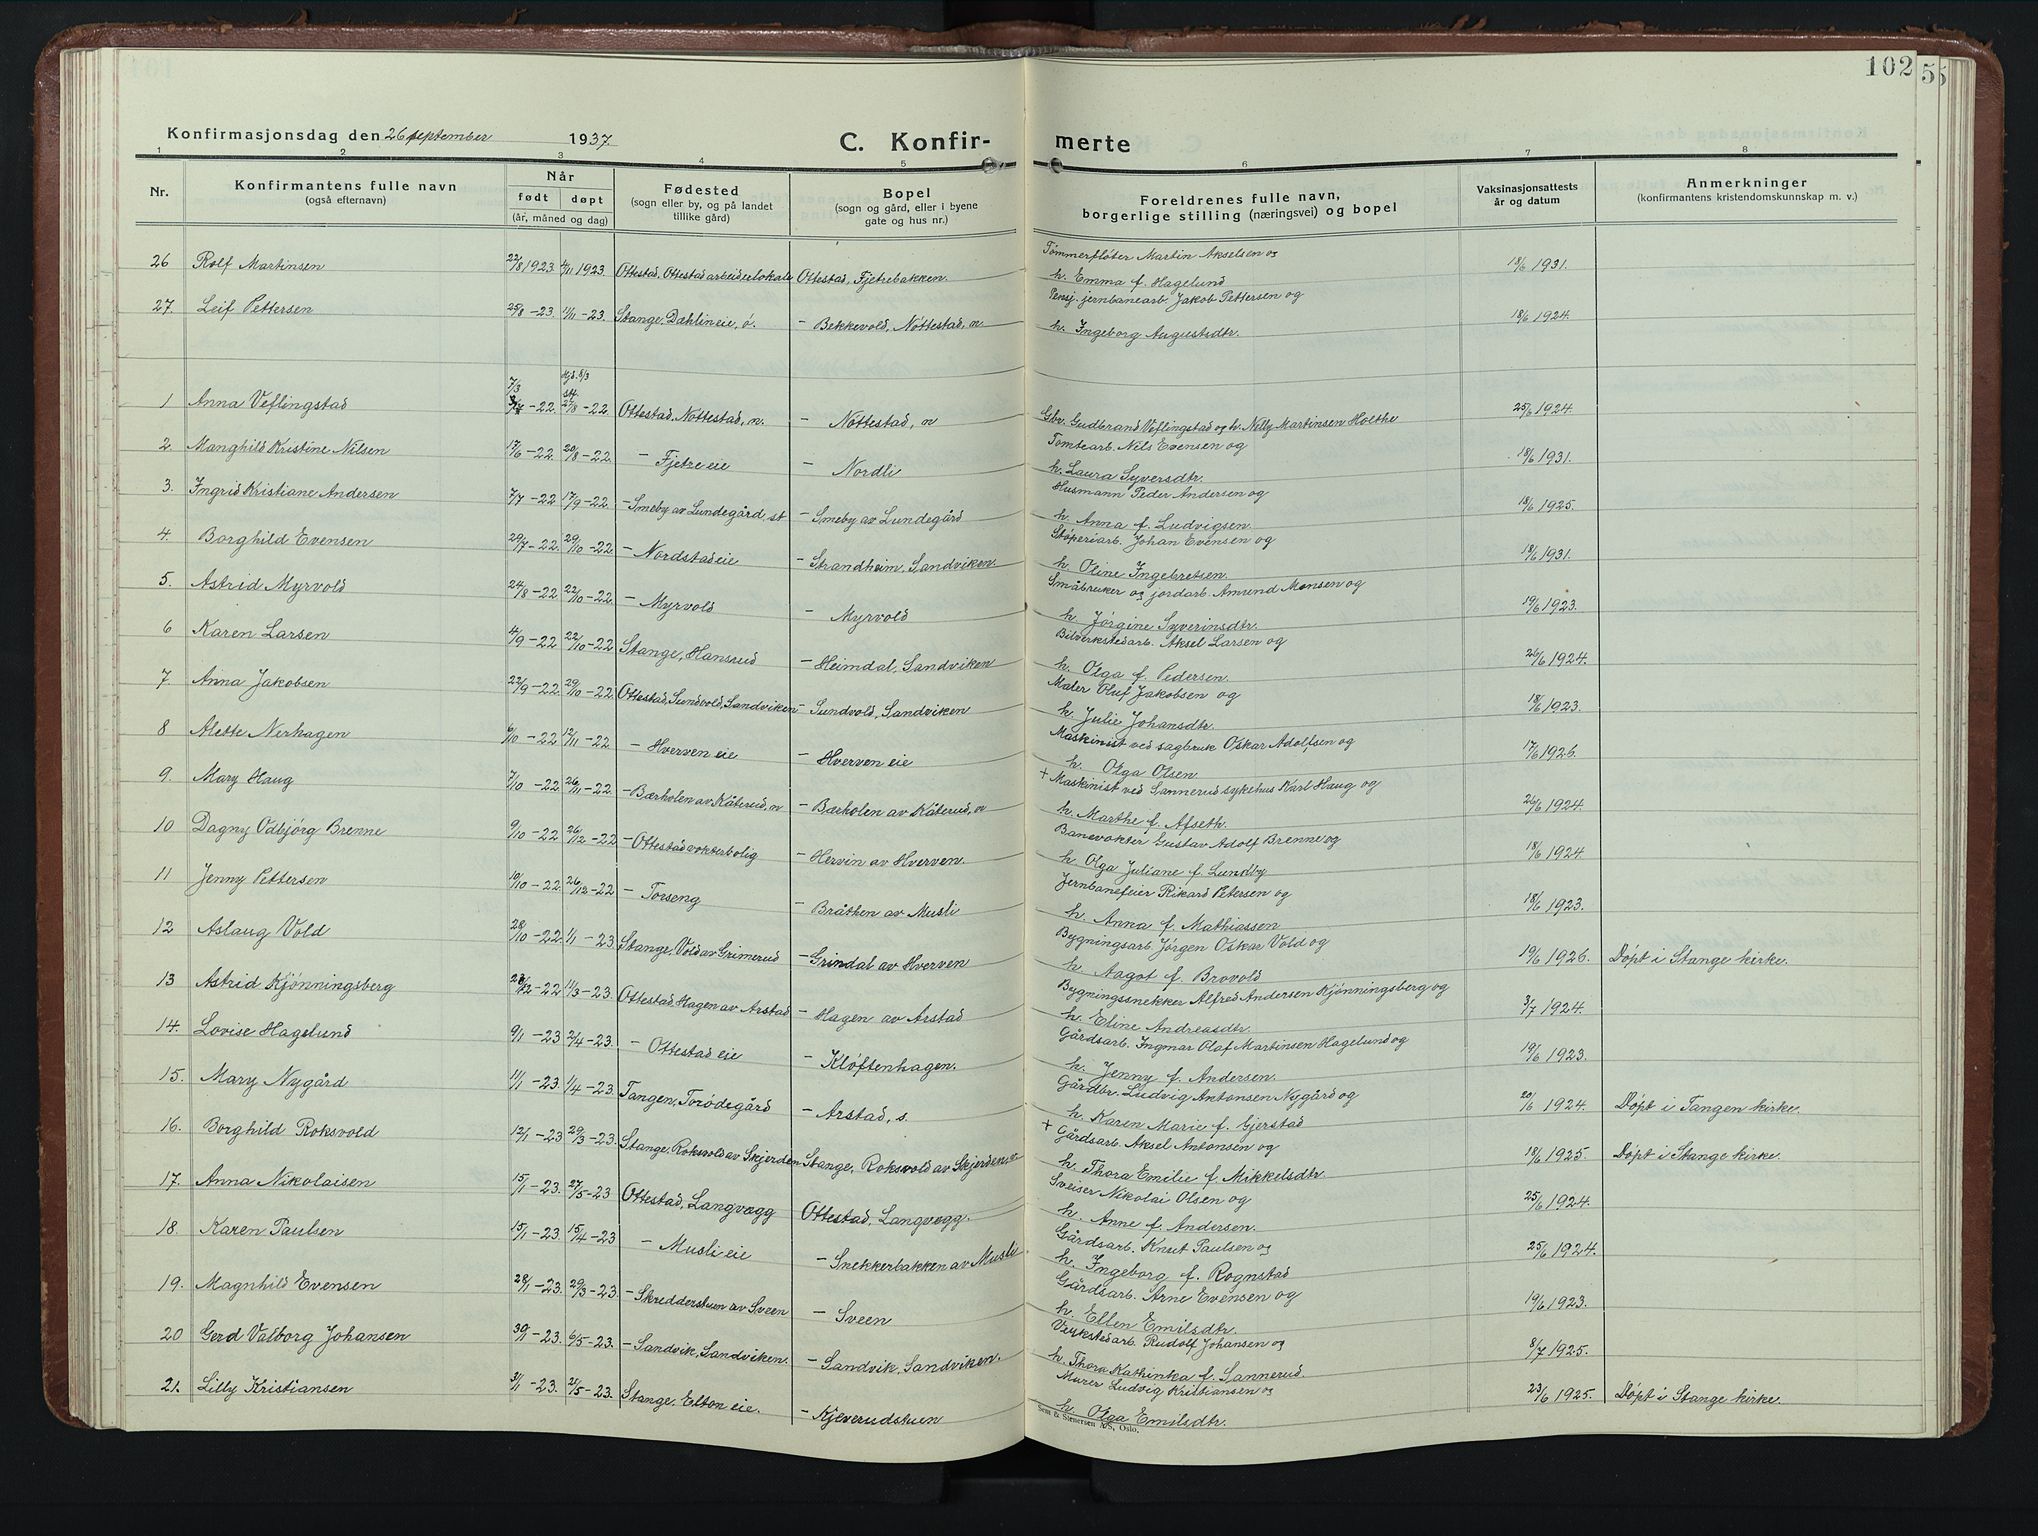 102
55
Konfirmasjonsdag den 26 september 1937.
C. Konfir-
merte
1 2 3 4 5 6 7 8
Nr.
Konfirmantens fulle navn
(også efternavn)
Når
født døpt
(år, måned og dag)
Fødested
(sogn eller by, og på landet
tillike gård)
Bopel
(sogn og gård, eller i byene
gate og hus nr.)
Foreldrenes fulle navn,
borgerlige stilling (næringsvei) og bopel
Vaksinasjonsattests
år og datum
Anmerkninger
(konfirmantens kristendomskunnskap m. v.)
26 Rolf Martinsen 22/8 1923. 4/11 1923. Ottestad, Ottestad arbeiderlokale Ottestad, Fjetrebakken. Tømmerfløter Martin Akselsen og 18/6 1931.
h. Emma f. Hagelund
27. Leif Pettersen 25/8 -23. 11/11 -23. Stange, Dæhlin eie, ø. - Bekkevold, Nøttestad, n. Pensj. jernbanearb. Jakob Pettersen og 18/6 1924.
h. Ingeborg Augustsdtr.
1 Anna Veflingstad 7/3 -22. 27/8 -22. Ottestad, Nøttestad, n. - Nøttestad, n Gbr. Gudbrand Veflingstad og h. Nelly Martinsen Holthe 25/6 1924.
2. Manghild Kristine Nilsen 17/6 -22. 20/8 -22. - Fjetre eie - Nordli Tomtearb. Nils Evensen og 18/6 1931.
h. Laura Syversdtr.
3. Ingrid Kristiane Andersen 7/7 -22 17/9 -22. - Smeby av Lundegård, st - Smeby av Lundegård Husmann Peder Andersen og 18/6 1925.
h. Anna f. Ludvigsen.
4. Borghild Evensen 20/7 -22. 29/10 -22. - Nordstad eie - Strandheim, Sandviken. Støperiarb. Johan Evensen og 18/6 1931.
h. Oline Ingebretsen.
5. Astrid Myrvold 24/8 -22. 22/10 -22. - Myrvold - Myrvold Småbruker og jordarb. Amund Monsen og 19/6 1923.
h. Jørgine Syverinsdtr.
6 Karen Larsen 4/9 -22. 22/10 -22. Stange, Hansrud - Heimdal, Sandviken Bilverkstedarb. Aksel Larsen og 26/6 1924.
h. Olga f. Pedersen.
7. Anna Jakobsen 22/9 -22. 29/10 -22. Ottestad, Sundvold, Sandviken - Sundvold, Sandviken Maler Oluf Jakobsen og 18/6 1923.
h. Julie Johansdtr.
8 Alette Nerhagen 6/10 -22 12/11 -22 - Hverven eie - Hverven eie Maskinist ved sagbruk Oskar Adolfsen og 17/6 1926.
h. Olga Olsen
9. Mary Haug 7/10 -22. 26/11 -22. - Bærholen av Kåterud, n - Bærholen av Kåterud, n + Maskinist ved Sannerud sykehus Karl Haug og 26/6 1924.
h. Marthe f. Afseth.
10 Dagny Odbjørg Brenne 9/10 -22 26/12 -22 - Ottestad vokterbolig - Hervin av Hverven. Banevokter Gustav Adolf Brenne og 18/6 1924.
h. Olga Juliane f. Lundby
11 Jenny Pettersen 10/10 -22. 26/12 -22 - Torseng - Bråthen av Musli Jernbanefeier Rikard Petersen og 18/6 1923.
h. Anna f. Mathiassen
12 Aslaug Vold 28/10 -22. 1/1 -23. Stange, Vold av Grimerud - Grindal av Hverven Bygningsarb. Jørgen Oskar Vold og 19/6 1926. Døpt i Stange kirke.
h. Aagot f. Brovold
13 Astrid Kjønningsberg 28/12 -22 11/3 -23. Ottestad Hagen av Arstad - Hagen av Arstad Bygningssnekker Alfred Andersen Kjønningsberg og 3/7 1924.
h. Eline Andreasdtr.
14. Lovise Hagelund 9/1 -23 2/4 -23. - Ottestad eie - Kløftenhagen. Gårdsarb. Ingmar Olaf Martinsen Hagelund og 19/6 1923.
h. Jenny f. Andersen.
15. Mary Nygård 11/1 -23. 1/4 -23. Tangen, Torødegård - Arstad, s. Gårdbr. Ludvig Antonsen Nygård og 20/6 1924. Døpt i Tangen kirke.
h. Karen Marie f. Gjerstad
16. Borghild Roksvold 12/1 -23 29/3 -23. Stange, Roksvold av Skjerden Stange, Roksvold av Skjerden + Gårdsarb. Aksel Antonsen og 18/6 1925. Døpt i Stange kirke.
h. Thora Emilie f. Mikkelsdtr.
17. Anna Nikolaisen 15/1 -23. 27/5 -23 Ottestad, Langvegg Ottestad, Langvegg. Sveiser Nikolai Olsen og 25/6 1924.
h. Anne f. Andersen.
18. Karen Paulsen 15/1 -23. 15/4 -23 - Musli eie - Snekkerbakken av Musli Gårdsarb. Knut Paulsen og 25/6 1924.
h. Ingeborg f. Rognstad
19. Magnhild Evensen 28/1 -23. 29/3 -23. - Skredderstuen av Sveen - Sveen Gårdsarb. Arne Evensen og 19/6 1923.
h. Ellen Emilsdtr.
20 Gerd Valborg Johansen 30/1 -23. 6/5 -23. - Sandvik, Sandviken. - Sandvik, Sandviken. Verkstedarb. Rudolf Johansen og 8/7 1925.
h. Thora Kathinka f. Sannerud.
21. Lilly Kristiansen 31/1 -23. 21/5 -23. Stange, Elton eie. - Kjeverudstuen Murer Ludvig Kristiansen og 23/6 1925. Døpt i Stange kirke.
h. Olga Emilsdtr.
Sem & Stenersen A/S, Oslo.